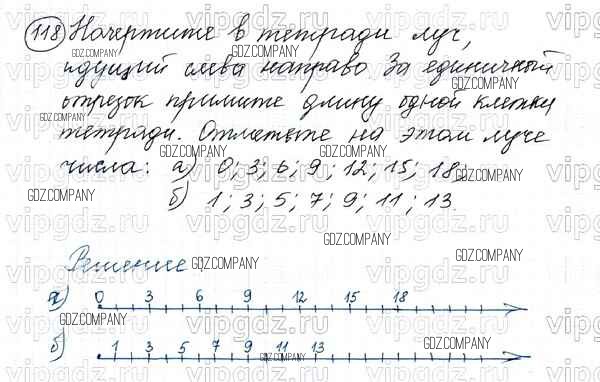 118 Начертите в тетради луч,
идущий слева направо За единичный
отрезок примите длину одной клетки
тетради. Отметьте на этом луче
числа: а) 0; 3; 6; 9; 12; 15; 18;
б) 1; 3; 5; 7; 9; 11; 13.
Решение
а) 0 3 6 9 12 15 18
б) 1 3 5 7 9 11 13
vipgdz.ru
GDZ.COMPANY